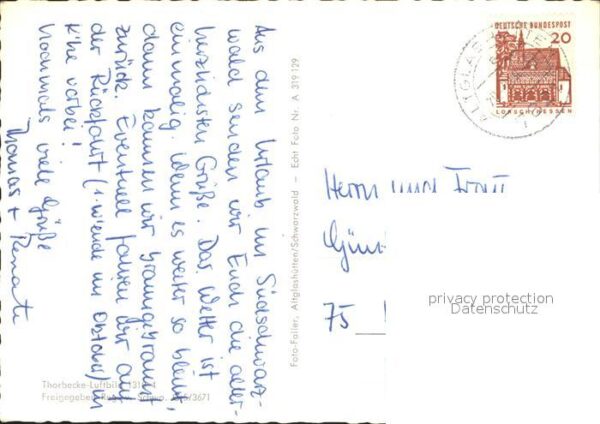 Aus dem Urlaub im Südschwarz-
wald senden wir Euch die aller-
herzlichsten Grüße. Das Wetter ist
einmalig. Wenn es weiter so bleibt,
dann kommen wir braungebrannt
zurück. Eventuell fahren wir auf
der Rückfahrt (1. W'ende im Oktober) in
vorbei!
Nochmals viele Grüße
Thomas + Renate
Thorbecke-Luftbild
Freigegeben Reg.
/3671
Foto-Faller, Altglashütten/Schwarzwald – Echt Foto Nr. A 319 129
DEUTSCHE BUNDESPOST
20
LORSCH/HESSEN
Herrn
75
privacy protection
Datenschutz